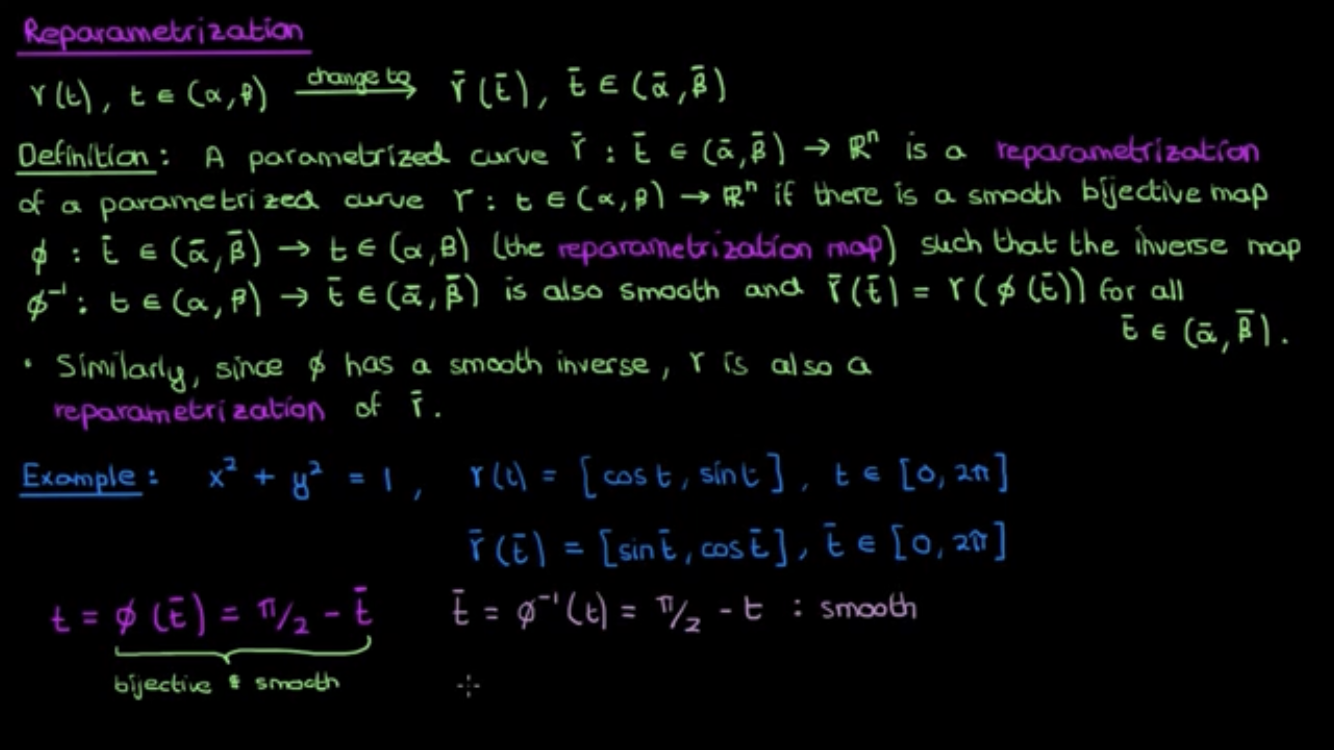 Reparametrization
r(t), t ∈ (α, β) change to → r̄(t̄), t̄ ∈ (ᾱ, β̄)
Definition: A parametrized curve r̄ : t̄ ∈ (ᾱ, β̄) → ℝⁿ is a reparametrization
of a parametrized curve r : t ∈ (α, β) → ℝⁿ if there is a smooth bijective map
ϕ : t̄ ∈ (ᾱ, β̄) → t ∈ (α, β) (the reparametrization map) such that the inverse map
ϕ⁻¹ : t ∈ (α, β) → t̄ ∈ (ᾱ, β̄) is also smooth and r̄(t̄) = r(ϕ(t̄)) for all
t̄ ∈ (ᾱ, β̄).
• Similarly, since ϕ has a smooth inverse, r is also a
reparametrization of r̄.
Example: x² + y² = 1, r(t) = [cos t, sin t], t ∈ [0, 2π]
r̄(t̄) = [sin t̄, cos t̄], t̄ ∈ [0, 2π]
t = ϕ(t̄) = π/2 - t̄ t̄ = ϕ⁻¹(t) = π/2 - t : smooth
bijective & smooth